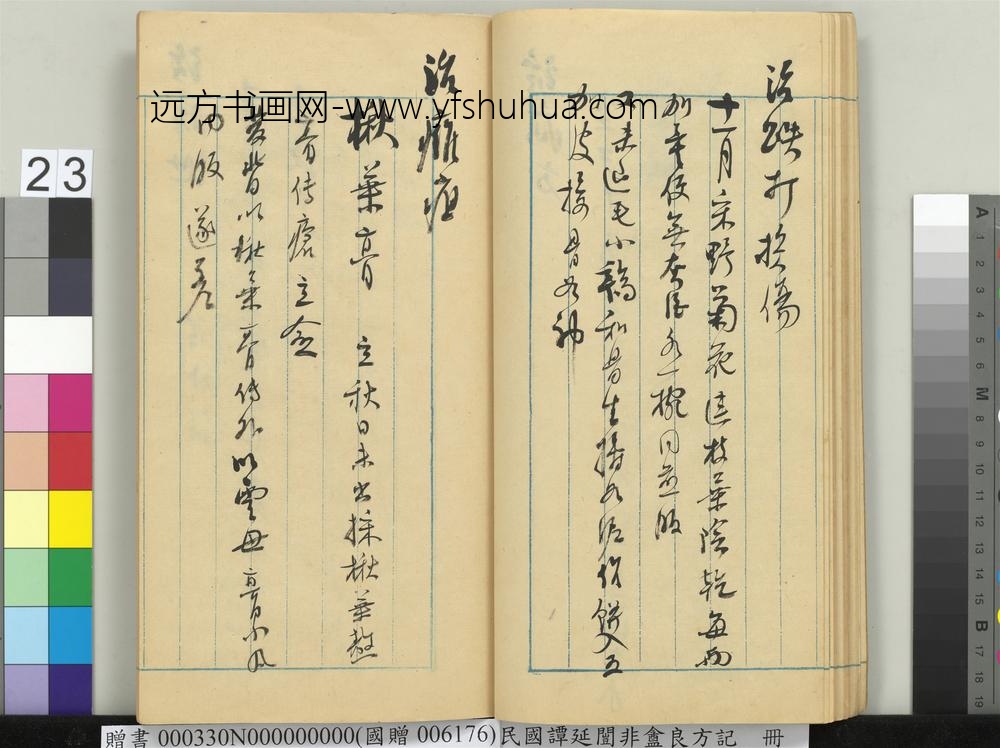 治跌打損傷
十一月采野菊花連枝葉陰乾每用
加童便無灰酒各一椀同煎服
又未退毛小鷄和骨生搗如泥作餅入五
加皮接骨如神
治癰疽
楸葉膏 立秋日未出採楸葉熬
膏傅瘡立愈
發背以楸葉膏傅外以雲母膏小丸
內服遂差
远方书画网-www.yfshuhua.com
23
A 1 2 3 4 5 6 M 8 9 10 11 12 13 14 15 B 17 18 19
贈書 000330N000000000(國贈 006176)民國譚延闓非盦良方記 冊